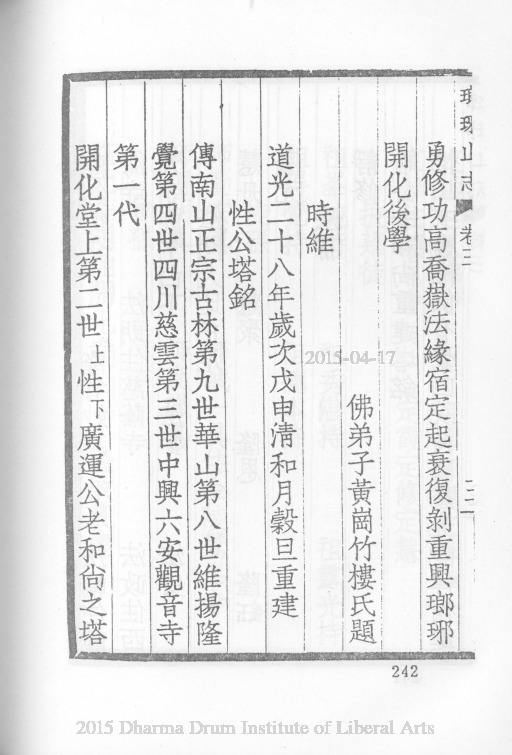 瑯琊山志 卷三 二二
勇修功高喬嶽法緣宿定起衰復剝重興瑯琊
開化後學
佛弟子黃崗竹樓氏題
時維
道光二十八年歲次戊申清和月穀旦重建
性公塔銘
傳南山正宗古林第九世華山第八世維揚隆
覺第四世四川慈雲第三世中興六安觀音寺
第一代
開化堂上第二世上性下廣運公老和尚之塔
242
2015-04-17
2015 Dharma Drum Institute of Liberal Arts